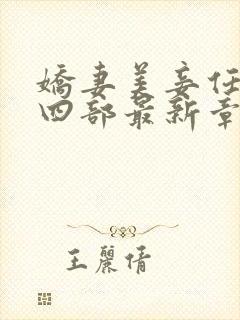 嬌妻美妾任
四部最新章
王麗倩